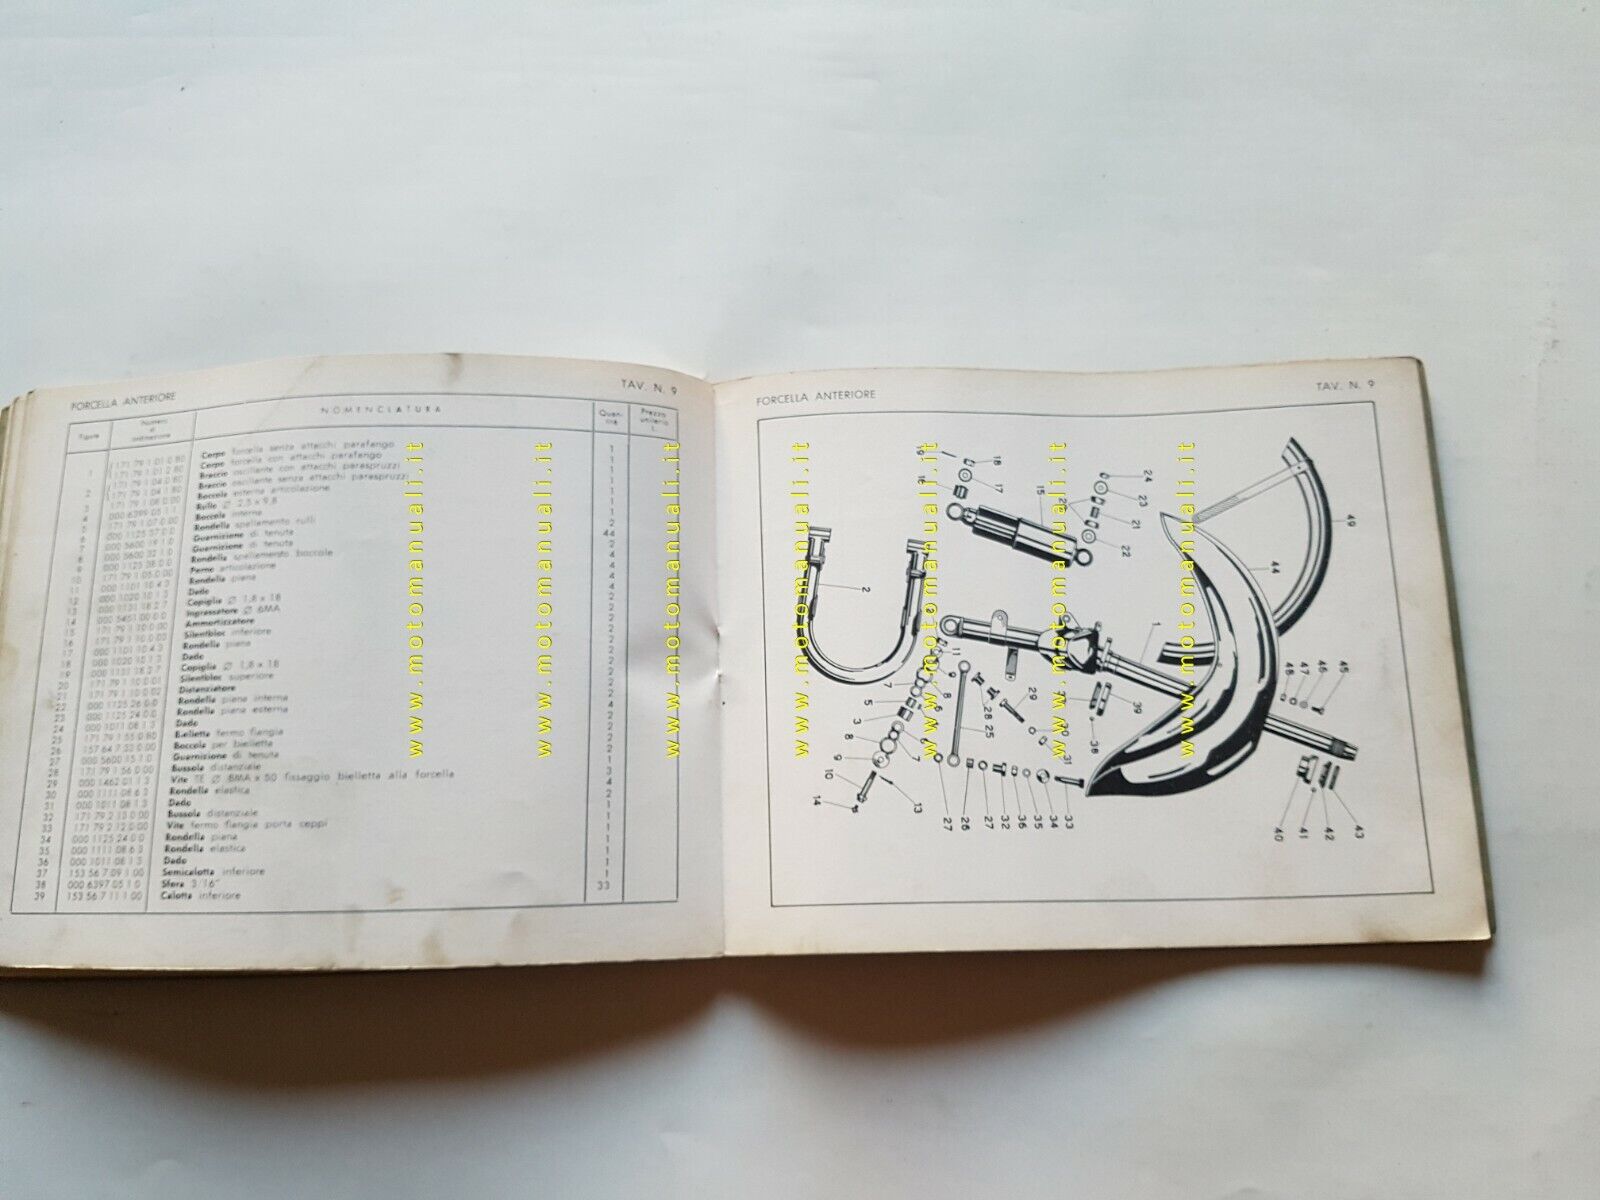 FORCELLA ANTERIORE TAV. N. 9
Figura Numeri di ordinazione NOMENCLATURA Quan-tità Prezzo unitario L.
1 171 79 1 01 0 80 Corpo forcella senza attacchi parafango 1
171 79 1 01 2 80 Corpo forcella con attacchi parafango 1
2 171 79 1 04 0 80 Braccio oscillante con attacchi paraspruzzi 1
171 79 1 04 1 80 Braccio oscillante senza attacchi paraspruzzi 1
3 171 79 1 08 0 00 Boccola esterna articolazione
4 000 6399 05 1 1 Rullo Ø 2,5 x 9,8
5 171 79 1 07 0 00 Boccola interna
6 000 1125 57 0 0 Rondella spallamento rulli
7 000 5600 19 1 0 Guarnizione di tenuta
8 000 5600 32 1 0 Guarnizione di tenuta
9 000 1125 38 0 0 Rondella spallamento boccole
10 171 79 1 05 0 00 Perno articolazione
11 000 1101 10 4 3 Rondella piana
12 000 1020 10 1 3 Dado
13 000 1131 18 2 7 Copiglia Ø 1,8 x 18
14 000 5451 00 0 0 Ingrassatore Ø 6MA
15 171 79 1 10 0 00 Ammortizzatore
16 171 79 1 10 0 Silentbloc inferiore
17 000 1101 10 4 3 Rondella piana
18 000 1020 10 1 3 Dado
19 000 1131 18 2 7 Copiglia Ø 1,8 x 18
20 171 79 1 10 0 01 Silentbloc superiore
21 171 79 1 10 0 02 Distanziatore
22 000 1125 26 0 0 Rondella piana interna
23 000 1125 24 0 0 Rondella piana esterna
24 000 1011 08 1 3 Dado
25 171 79 1 55 0 80 Bielletta fermo flangia
26 157 64 7 53 0 00 Boccola per bielletta
27 000 5600 15 1 0 Guarnizione di tenuta
28 171 79 1 56 0 00 Bussola distanziale
29 000 1462 01 1 3 Vite TE Ø 8MA x 50 fissaggio bielletta alla forcella
30 000 1111 08 6 3 Rondella elastica
31 000 1011 08 1 3 Dado
32 171 79 2 13 0 00 Bussola distanziale
33 171 79 2 12 0 00 Vite fermo flangia porta ceppi
34 000 1125 24 0 0 Rondella piana
35 000 1111 08 6 3 Rondella elastica
36 000 1011 08 1 3 Dado
37 153 56 7 09 1 00 Semicalotta inferiore 1
38 000 6397 05 1 0 Sfera 3/16" 33
39 153 56 7 11 1 00 Calotta inferiore
www.motomanuali.it
www.motomanuali.it
www.motomanuali.it
FORCELLA ANTERIORE TAV. N. 9
19 18 17 16 15
24 23 21 22
49 44
2 1
45 46 47 48
11 9 8 7 5 3 8 9 10 14 13
29 28 25 30 31 39 38
27 26 27 32 36 35 34 33
40 41 42 43
www.motomanuali.it
www.motomanuali.it
www.motomanuali.it
www.motomanuali.it